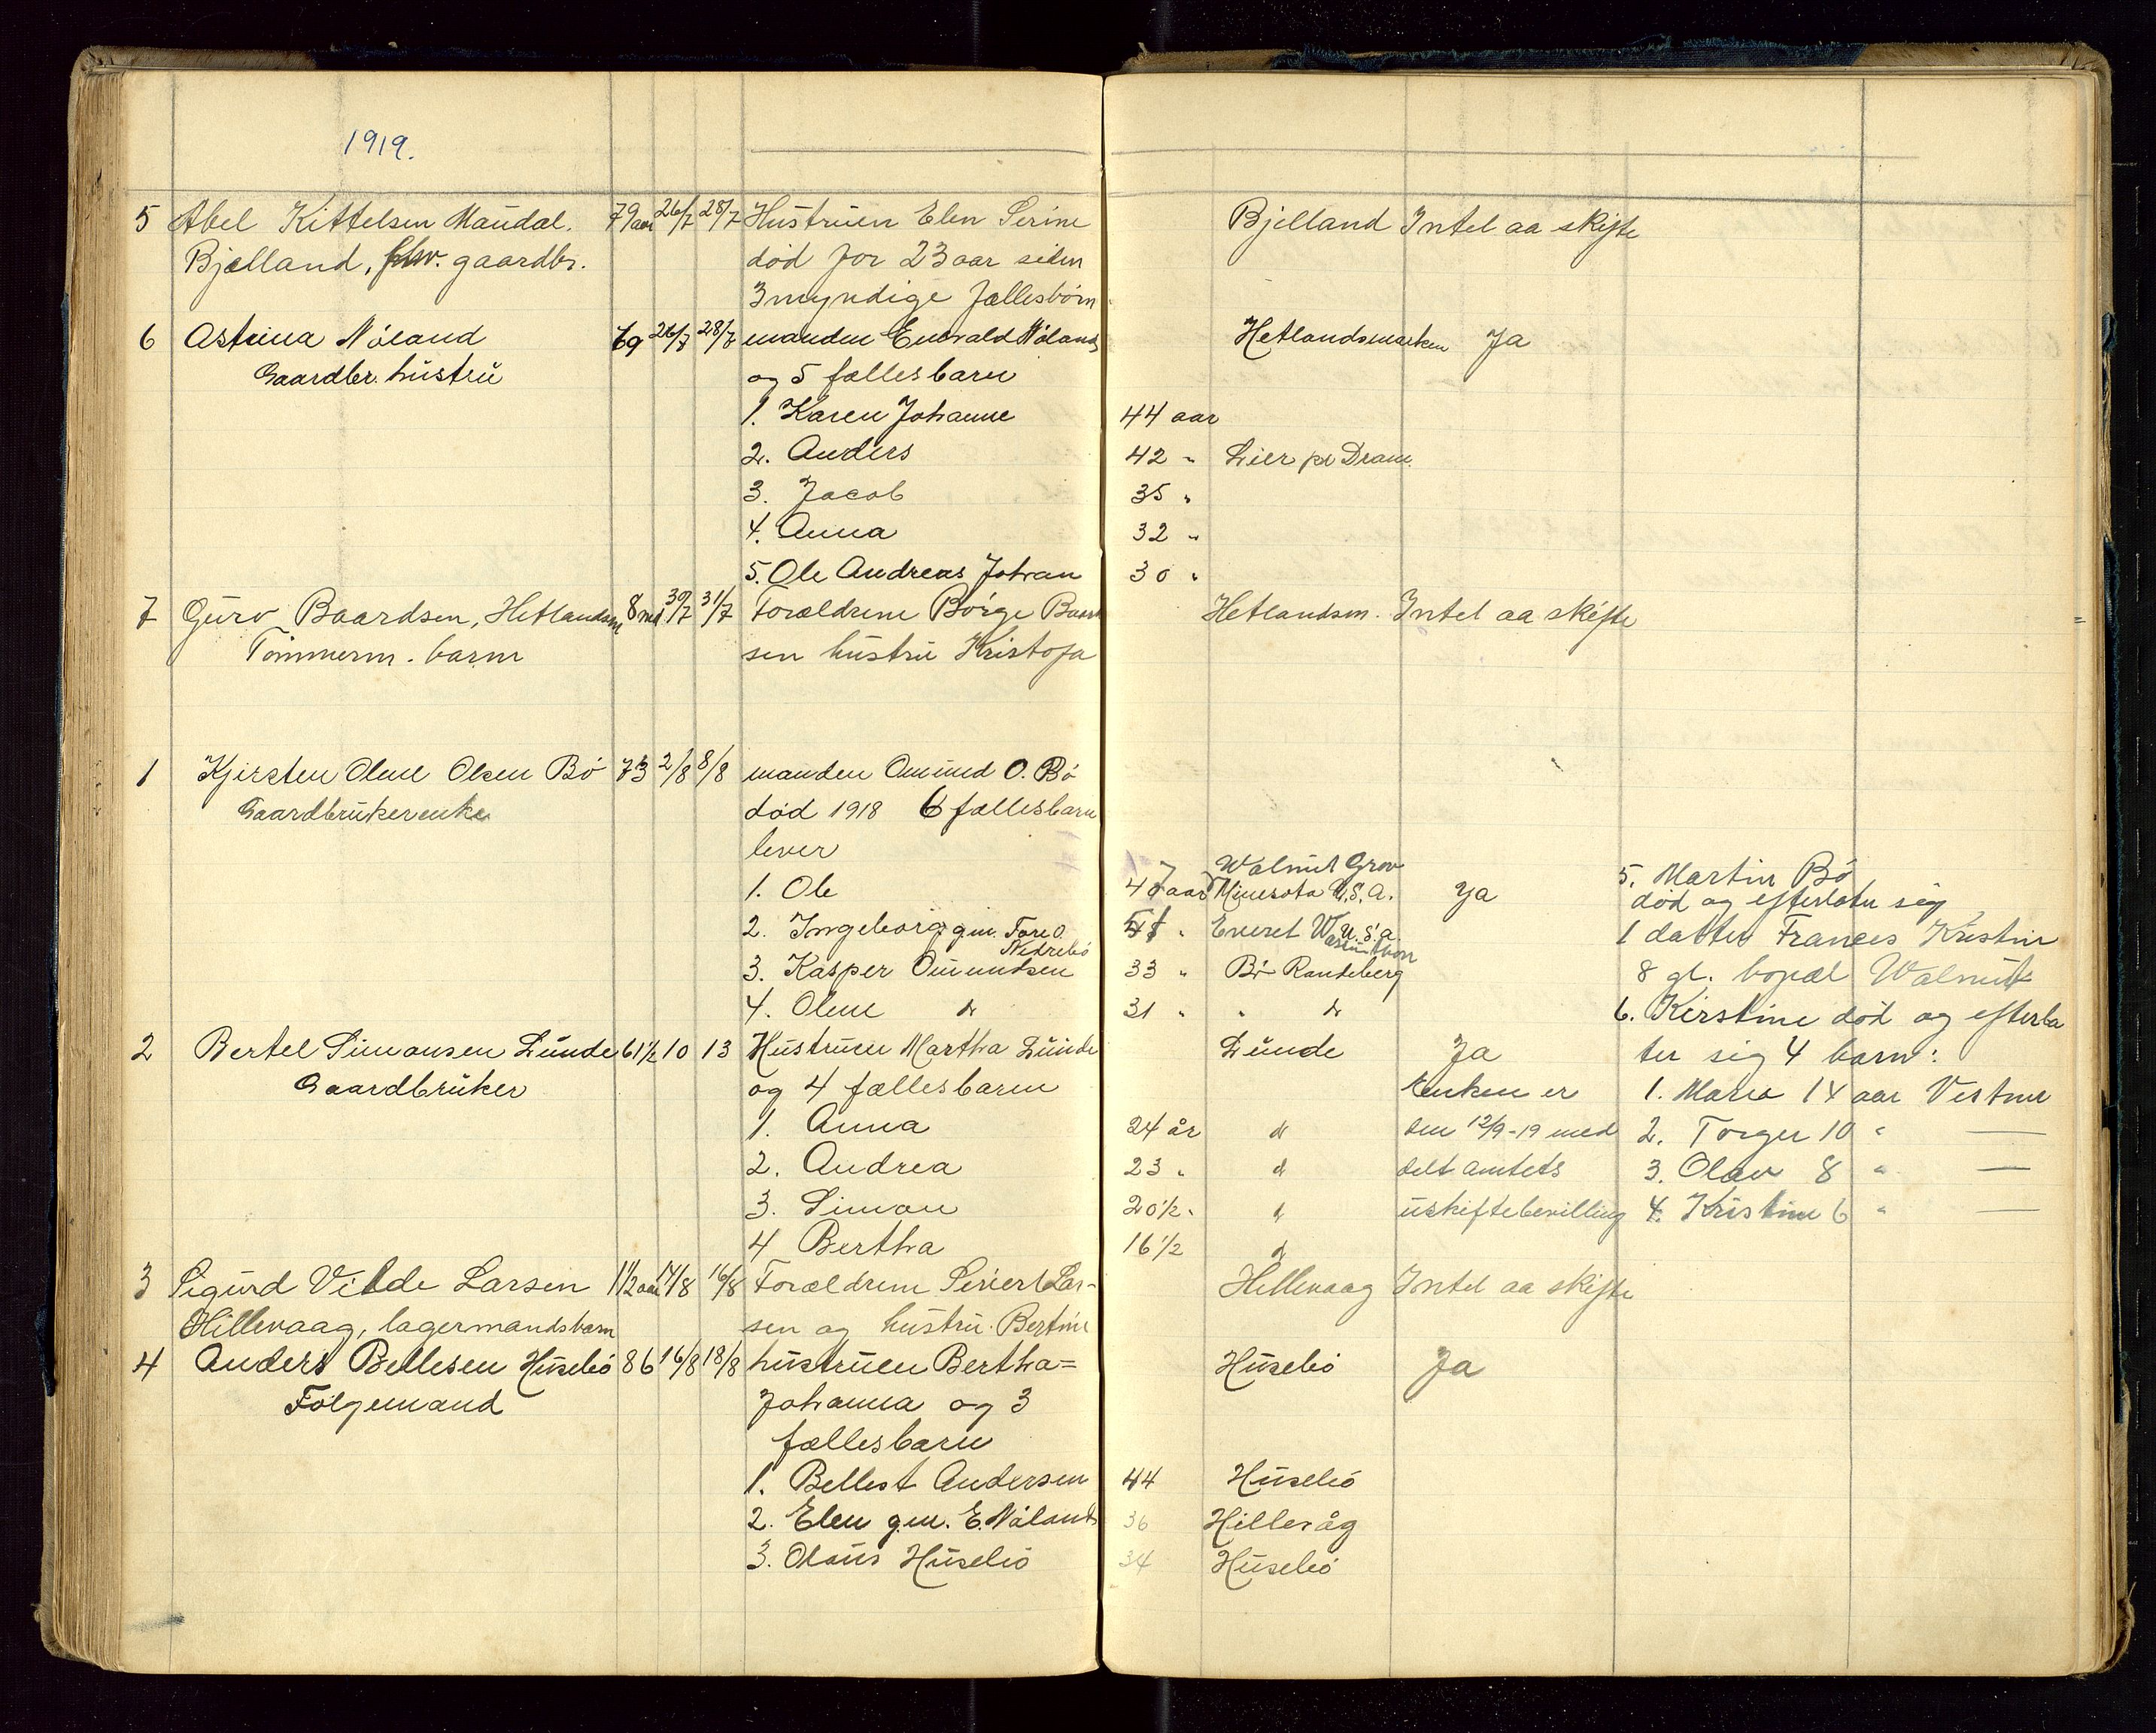 1919.
5 Abel Kittelsen Maudal. 79 aar 26/7 28/7 Hustruen Elen Serine Bjelland Intet aa skifte
Bjælland, gaardbr. død for 23 aar siden
3 myndige fællesbørn
6 Astrina Nóland 69 26/7 28/7 manden Enevald Nóland Hetlandsmarken Ja
Gaardbr. hustru og 5 fællesbarn
1. Karen Johanne 44 aar
2. Anders 42 " Lier pr Dram.
3. Jacob 35 "
4. Anna 32 "
5. Ole Andreas Johan 30 "
7 Guro Baardsen, Hetlandsm 8 md 30/7 31/7 Forældrene Børge Baard Hetlandsm. Intet aa skifte
Tømmerm. barn sen hustru Kristofa
1 Kjirsten Oline Olsen Bó 73 2/8 8/8 manden Omund O. Bó
Gaardbrukerenke død 1918 6 fællesbarn
lever
Walnut Grov 5. Martin Bó
1. Ole aar Minesota U.S.A. Ja død og efterlater sig
2. Ingeborg gm. Tore O. Nedrebó " Everet Wasinthon U.S.a. 1 datter Frances Kristin
3. Kasper Omundsen 33 " Bó Randeberg 8 gl. bopæl Walnut
4. Oline d 31 " " d 6. Kirstine død og efterla
2 Bertel Simonsen Lunde 61½ 10 13 Hustruen Martha Lunde Lunde Ja ter sig 4 barn:
Gaardbruker og 4 fællesbarn Enken er 1. Maria 14 aar Vestnr
1. Anna 24 år d den 12/9-19 med 2. Torger 10 " —
2. Andrea 23 " d delt amtets 3. Olav 8 " —
3. Simon 20½ " d uskiftebevilling 4. Kristine 6 " —
4 Bertha 16½ d
3 Sigurd Vilde Larsen 1½ aar 14/8 16/8 Forældrene Sivert Lar- Hillevaag Intet aa skifte
Hillevaag, lagermandsbarn sen og hustru Bertine
4 Anders Bellesen Huselió 86 16/8 18/8 hustruen Bertha= Huselió Ja
Følgemand Johanna og 3
fællesbarn
1. Bellest Andersen 44 Huselió
2. Elen gm. E. Nóland 36 Hillevåg
3. Olaus Huselió 34 Huselió